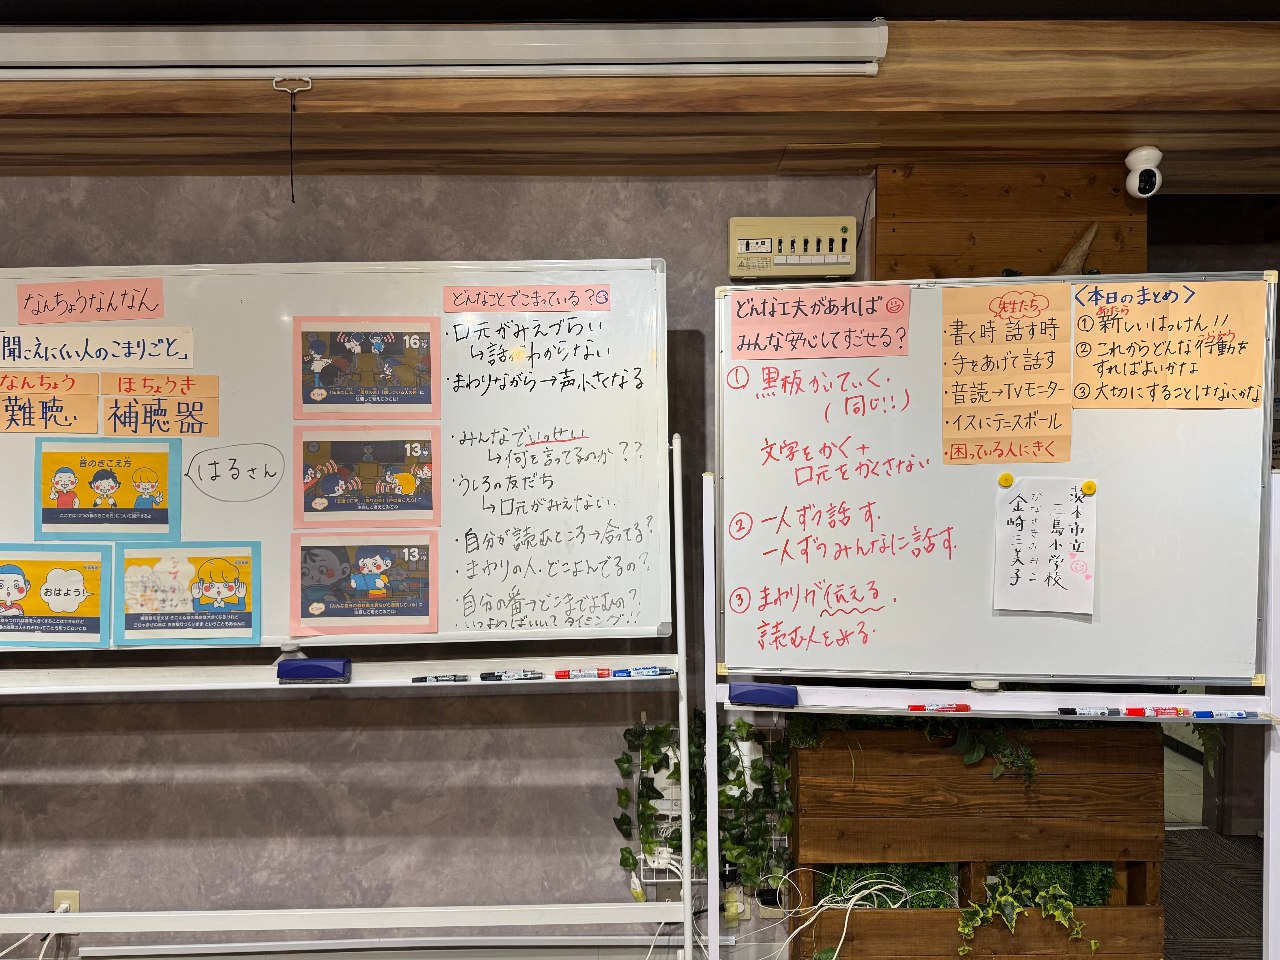 なんちょうなんなん
「聞こえにくい人のこまりごと」
なんちょう
難聴
ほちょうき
補聴器
音のきこえ方
はるさん
おはよう!
16
13
13
どんなことでこまっている?
・口元がみえづらい
↳話がわからない
・まわりながら→声小さくなる
・みんなでいっせい
↳何を言ってるのか??
・うしろの友だち
↳口元がみえない…
・自分が読むところ→合ってる?
・まわりの人・どこよんでるの?
・自分の番っどこまでよむの?
・いつよめばいい?タイミング!!
どんな工夫があれば
みんな安心してすごせる?
① 黒板かいていく.
(同じ!!)
文字をかく+
口元をかくさない
② 一人ずつ話す.
一人ずつみんなに話す.
③ まわりが伝える
読む人をみる.
先生たち
・書く時 話す時
・手をあげて話す
・音読→TVモニター
・イスにテニスボール
・困っている人にきく
<本日のまとめ>
あたら
① 新しいはっけん!!
こうどう
② これからどんな行動を
すればよいかな
③ 大切にすることはなにかな
茨木市立
三島小学校
金崎三美子